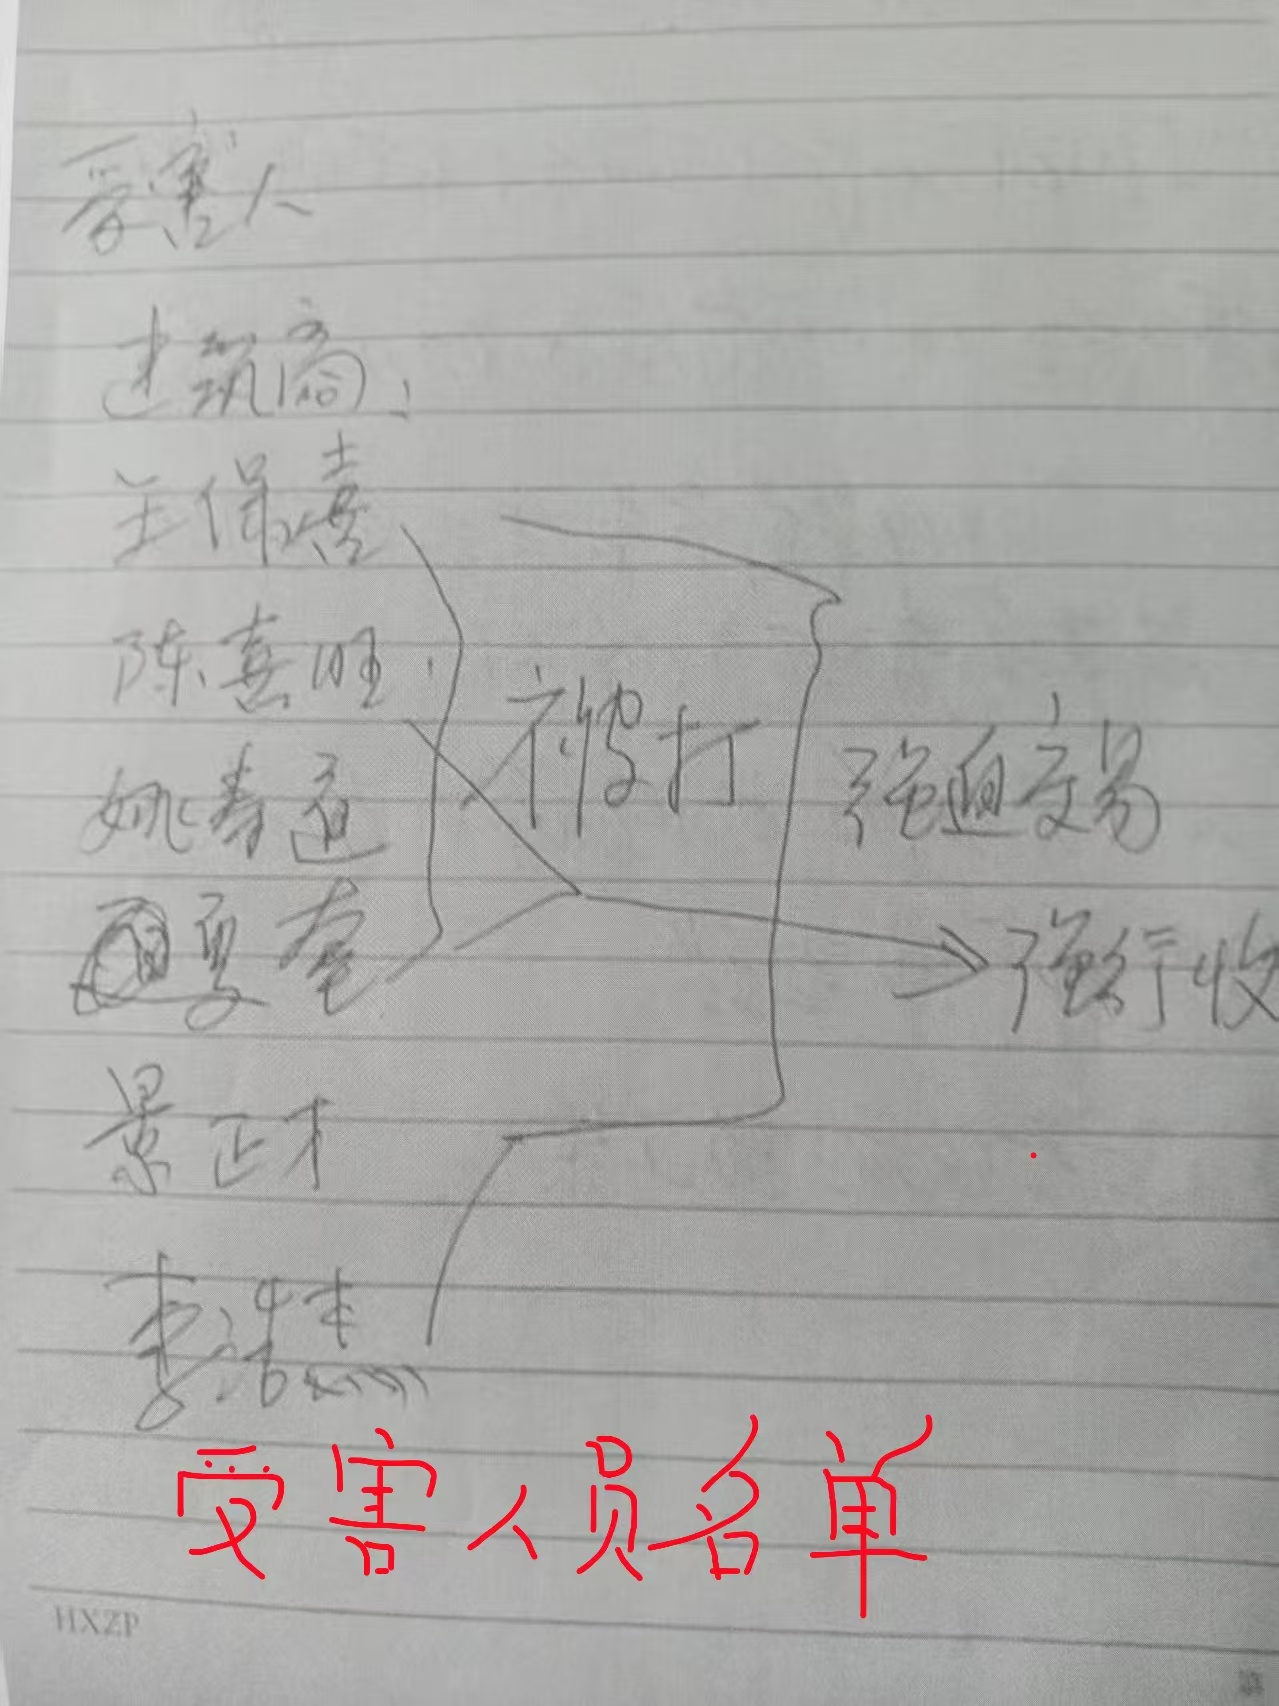 受害人
建筑商:
王保喜
陈喜旺
姚春道
被打
强迫交易
夏奎
强行收
景正才
李
受害人员名单
HXZP